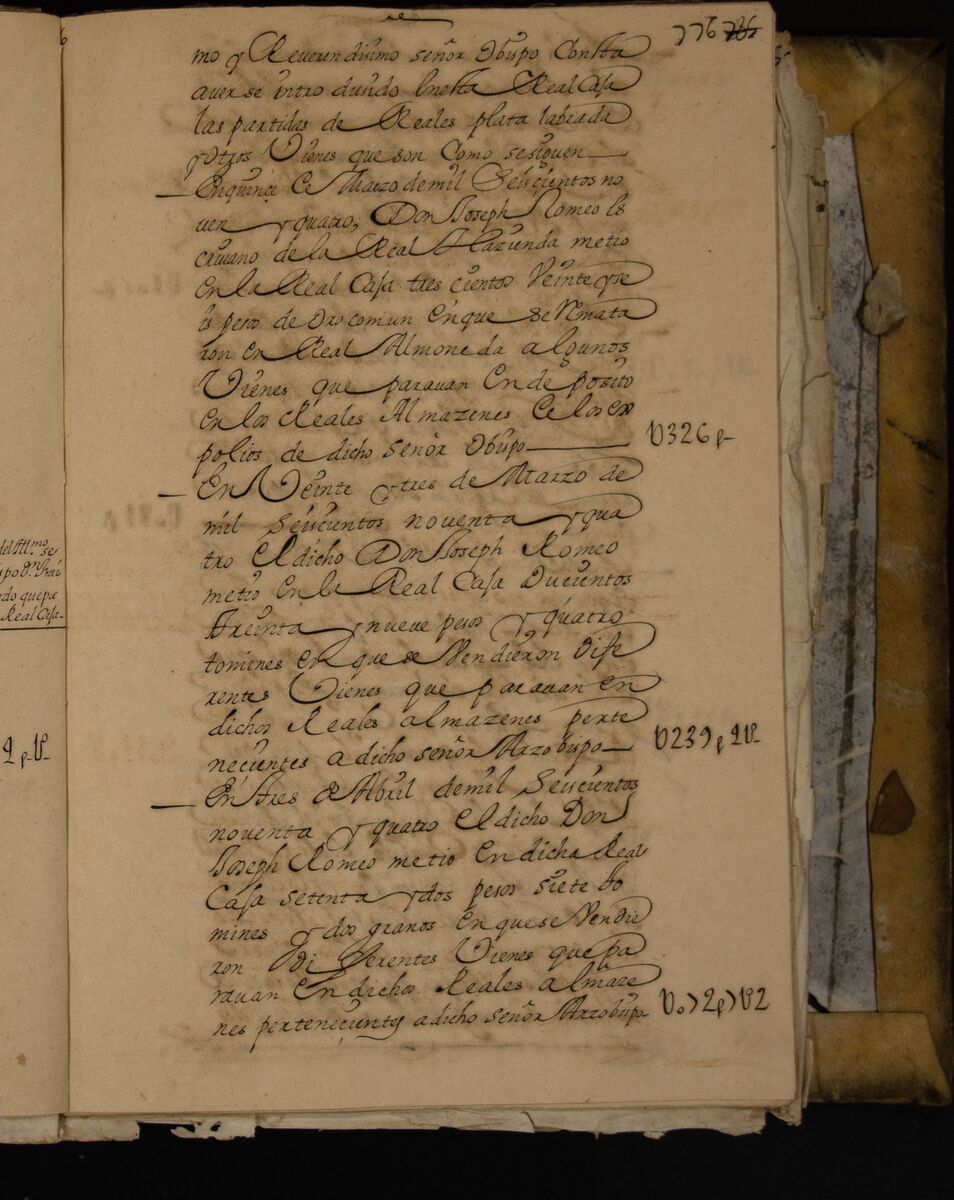 776 786
mo y Reverendisimo señor Obispo Consta
averse intro dusido Enesta Real Casa
las partidas de Reales plata labrada
y Otros Vienes que son Como sesiguen
En quince de Marzo de mil Seiscientos no
uen y quatro, Don Joseph Romeo es
criuano de la Real Hazienda metio
en la Real Casa tres cientos Veinte y se
is pesos de Oro comun en que se Remata
ron en Real Almoneda algunos
Vienes que parauan En de pozito
en los Reales Almazenes de los ex
polios de dicho señor Obispo
U326 p
En Veinte y tres de Marzo de
mil Seiscientos noventa y qua
tro El dicho Don Joseph Romeo
metio En la Real Casa Ducientos
treinta y nueve pesos y quatro
tomines en que se Vendieron dife
rentes Vienes que parauan en
dichos Reales almazenes perte
necientes a dicho señor Arzobispo
U239 p
En tres de Abril de mil Seiscientos
noventa y quatro el dicho Don
Joseph Romeo metio En dicha Real
Casa setenta y dos pesos siete to
mines y dos granos en que se Vendie
ron Di ferentes Vienes que pa
rauan En dichos Reales almaze
nes pertenecientes a dicho señor Arzobispo
Uo72p7U2
del Ill.mo se
ispo D.n frai
do que pa
Real Casa